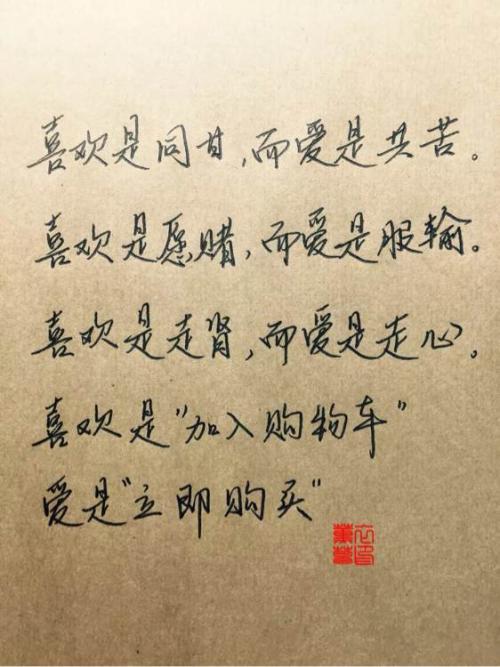 喜欢是同甘，而爱是共苦。
喜欢是愿赌，而爱是服输。
喜欢是走肾，而爱是走心。
喜欢是"加入购物车"
爱是"立即购买"